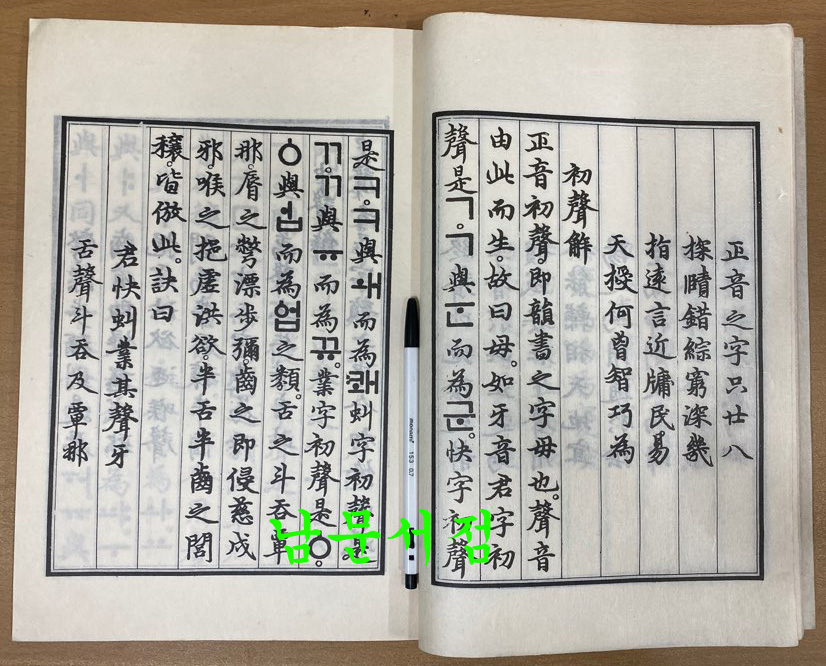 正音之字只廿八
探賾錯綜窮深幾
指遠言近牖民易
天授何曾智巧為
初聲解
正音初聲。即韻書之字母也。聲音
由此而生。故曰母。如牙音君字初
聲是ㄱ。ㄱ與ᅟᅮᆫ而為군。快字初聲
是ㅋ。ㅋ與ㅙ而為쾌。虯字初聲是
ㄲ。ㄲ與ㅠ而為뀨。業字初聲是ㆁ。
ㆁ與ᅟᅥᆸ而為ᅌᅥᆸ之類。舌之斗吞覃
那。脣之彆漂步彌。齒之即侵慈戌
邪。喉之挹虛洪欲。半舌半齒之閭
穰。皆倣此。訣曰
君快虯業其聲牙
舌聲斗吞及覃那
monami 153 0.7
남문서점